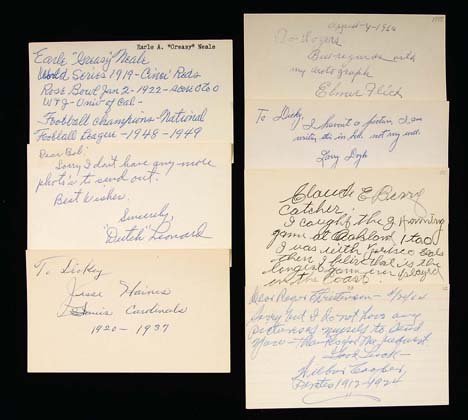 Earle A. "Greasy" Neale
Earle "Greasy" Neale
World Series 1919 - Cinci Reds
Rose Bowl Jan 2 - 1922 - score 0 to 0
W+J - Univ of Cal -
Football Champions - National
Football League - 1948 - 1949
Dear Bob:
Sorry I don't have any more
photo's to send out.
Best wishes.
Sincerely,
"Dutch" Leonard
To Dickey
Jesse Haines
St Louis Cardinals
1920 - 1937
August - 4 - 1960
To Rogers
Best regards with
my autograph
Elmer Flick
To Dicky,
I haven't a picture, I am
writing this in ink not my
Larry Doyle
Claude E Berry
Catcher.
I caught the
game at Oakland 1 to 0
I was with Frisco
then I belive that is the
longest game ever played
in the coast.
Dear Roger
Sorry but I do not have any
pictures of myself to send
you - Thanks for the request
Good Luck -
Wilbur Cooper
Pirates 1912 - 1924